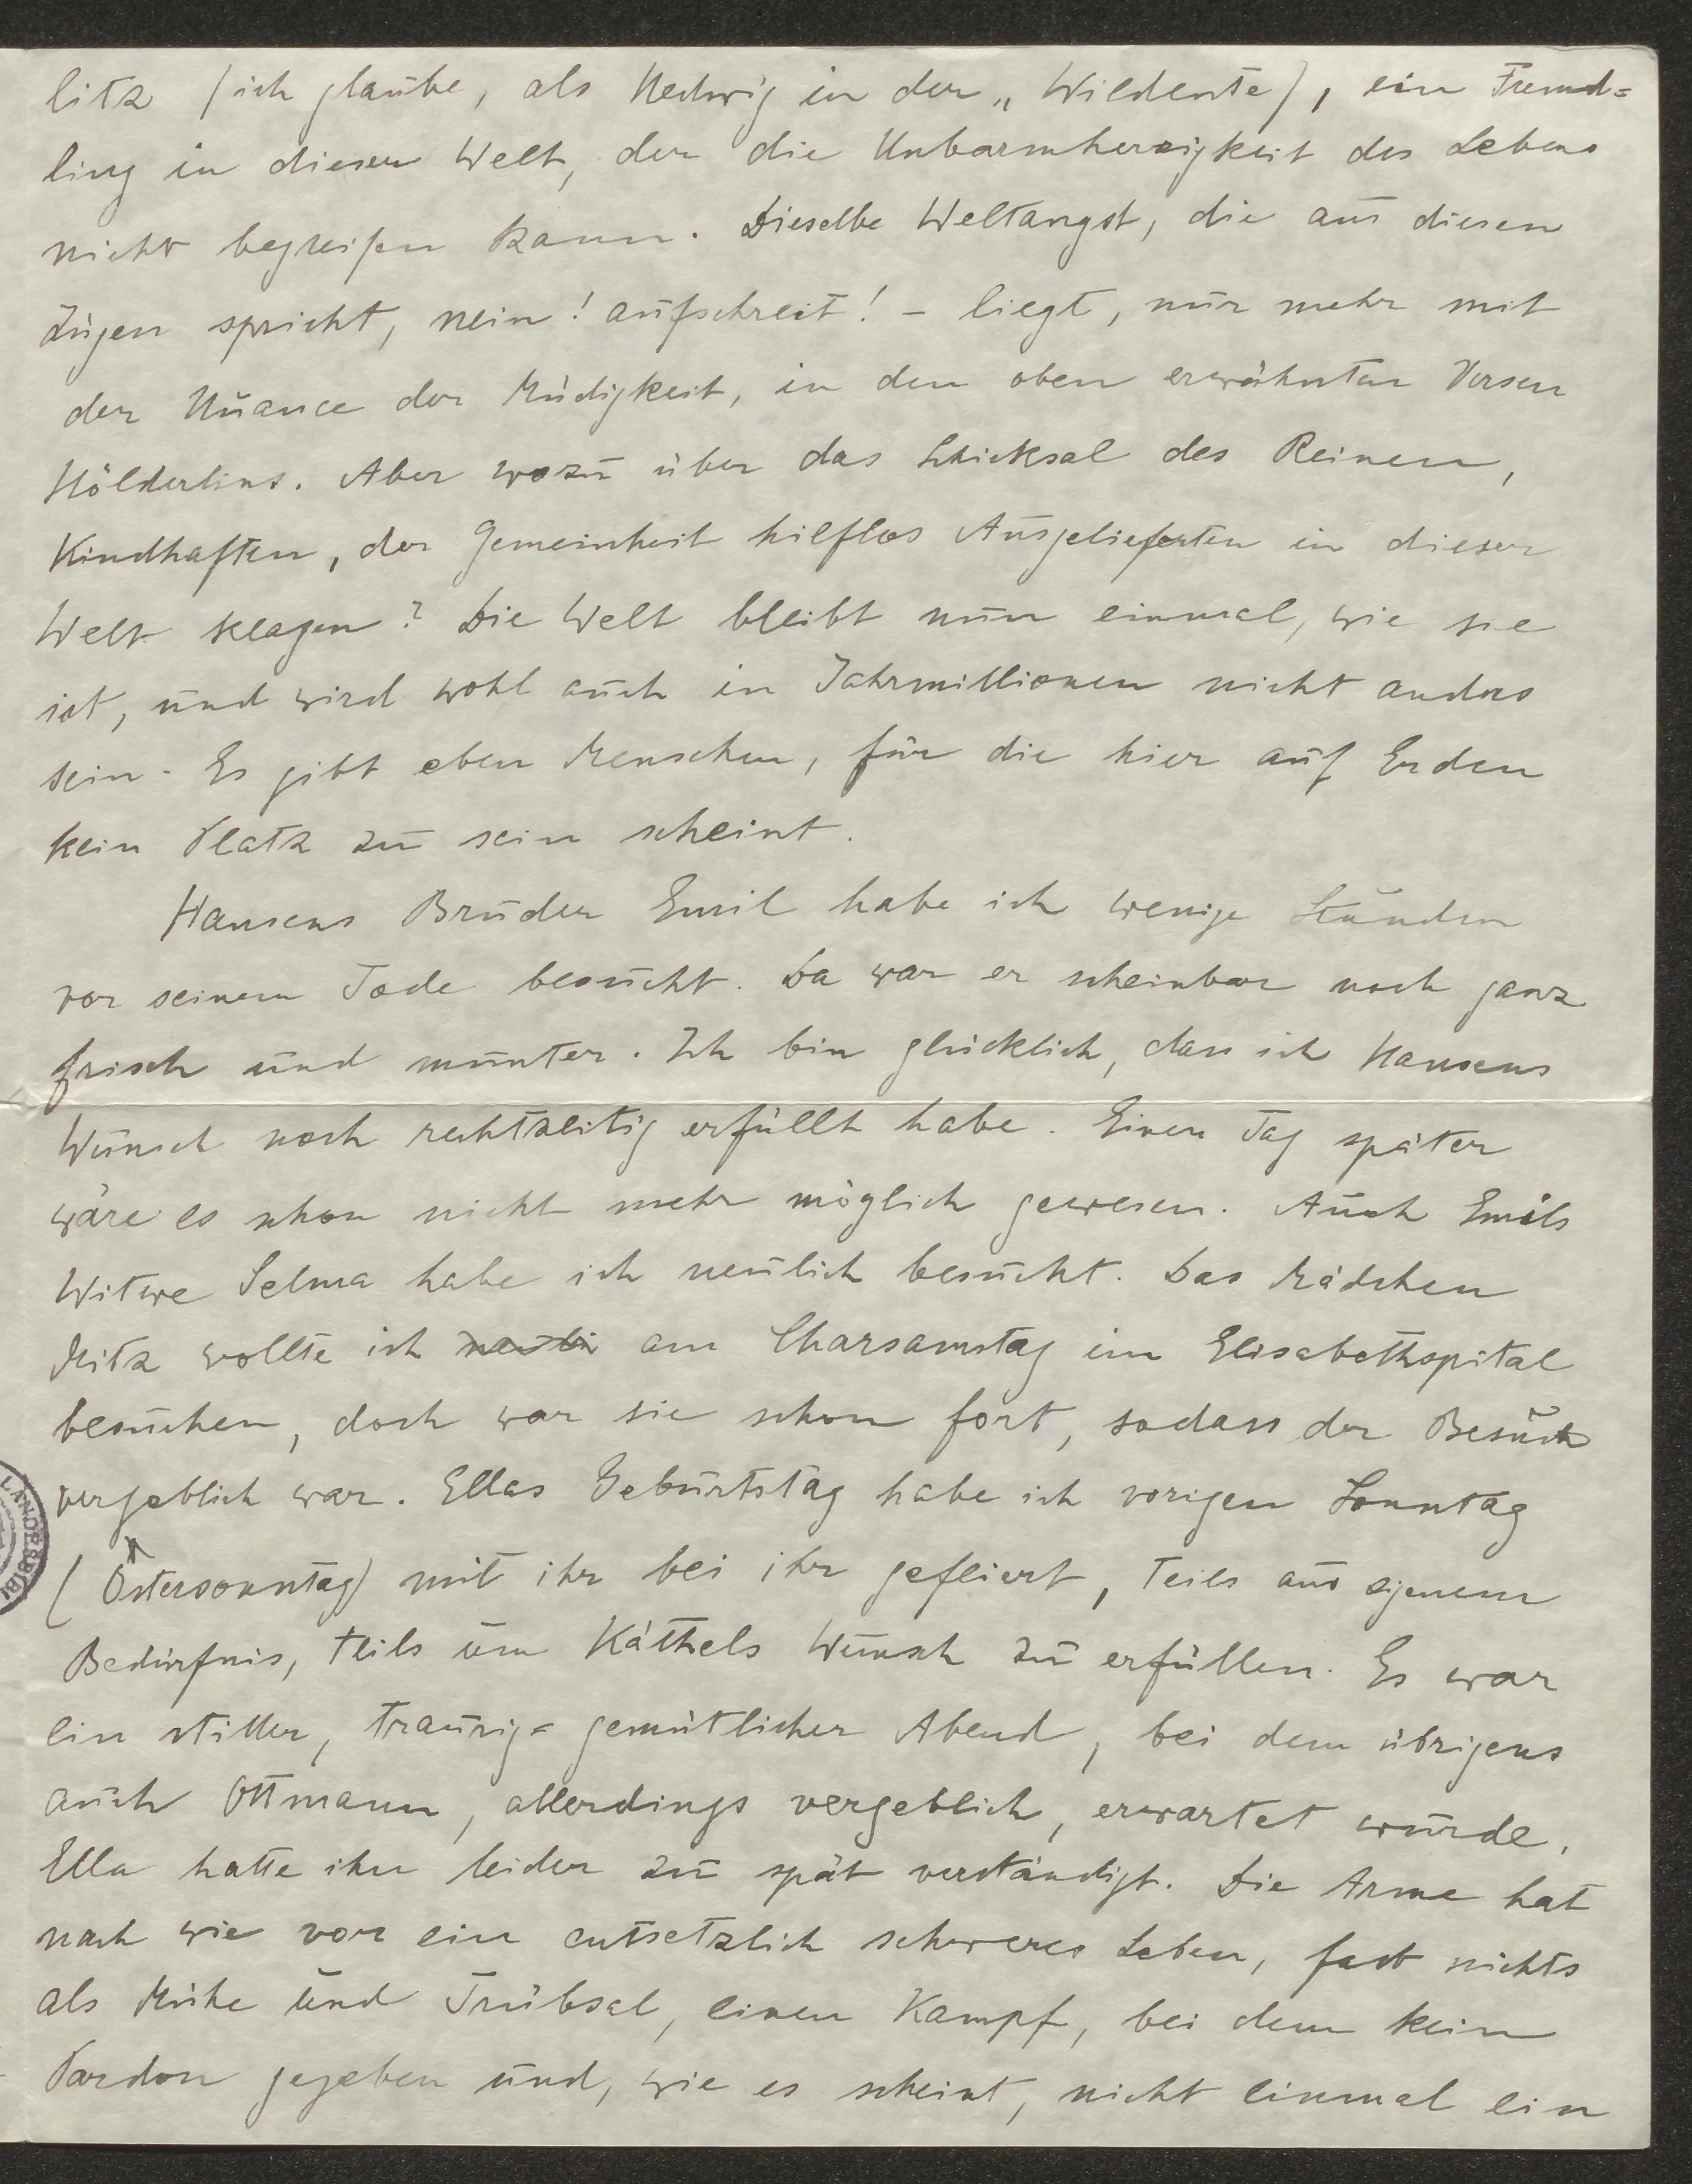 litz (ich glaube, als Hedwig in der „Wildente), ein Fremd=
ling in dieser Welt, der die Unbarmherzigkeit des Lebens
nicht begreifen kann. Dieselbe Weltangst, die aus diesen
Zügen spricht, nein! aufschreit! – liegt, nur mehr mit
der Nuance der Müdigkeit, in den oben erwähnten Versen
Hölderlins. Aber wozu über das Schicksal des Reinen,
Kindhaften, der Gemeinheit hilflos Ausgelieferten in dieser
Welt klagen? Die Welt bleibt nun einmal, wie sie
ist, und wird wohl auch in Jahrmillionen nicht anders
sein. Es gibt eben Menschen, für die hier auf Erden
kein Platz zu sein scheint.
Hansens Bruder Emil habe ich wenige Stunden
vor seinem Tode besucht. Da war er scheinbar noch ganz
frisch und munter. Ich bin glücklich, dass ich Hansens
Wunsch noch rechtzeitig erfüllt habe. Einen Tag später
wäre es schon nicht mehr möglich gewesen. Auch Emils
Witwe Selma habe ich neulich besucht. Das Mädchen
Mitz wollte ich am Charsamstag im Elisabethspital
besuchen, doch war sie schon fort, sodass der Besuch
vergeblich war. Ellas Geburtstag habe ich vorigen Sonntag
(Ostersonntag) mit ihr bei ihr gefeiert, teils aus eigenem
Bedürfnis, teils um Käthels Wunsch zu erfüllen. Es war
ein stiller, traurig=gemütlicher Abend, bei dem übrigens
auch Ottmann, allerdings vergeblich, erwartet wurde.
Ella hatte ihn leider zu spät verständigt. Die Arme hat
nach wie vor ein entsetzlich schweres Leben, fast nichts
als Mühe und Trübsal, einen Kampf, bei dem kein
Pardon gegeben und, wie es scheint, nicht einmal ein
LANDESBIBL